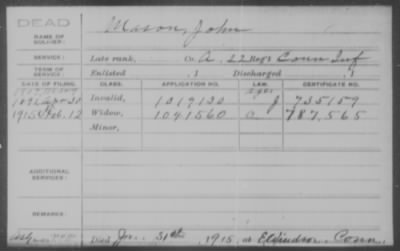 DEAD
NAME OF SOLDIER: Mason, John
SERVICE: Late rank, Co. A, 22 Reg't Conn Inf
TERM OF SERVICE: Enlisted , 1 Discharged , 1
DATE OF FILING. CLASS. APPLICATION NO. LAW. CERTIFICATE NO.
Invalid, 1019130 J 735159
1915 Feb. 12 Widow, 1041560 a 787,565
Minor,
ADDITIONAL SERVICES:
REMARKS:
Died Jan. 31st 1915, at Conn.